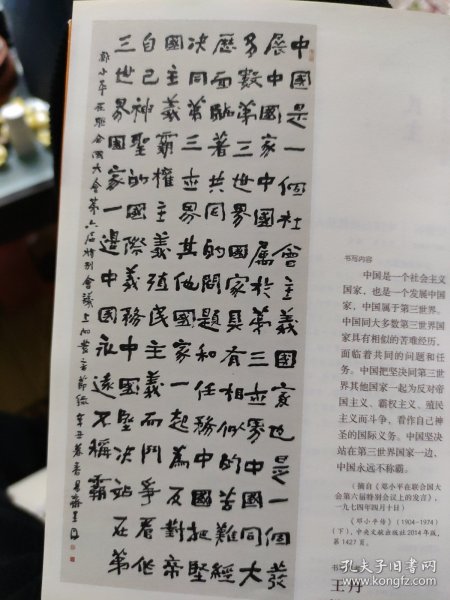 中國是一個社會主義國家也是一個發
展中國家中國屬於第三世界中國同大
多數第三世界國家具有相似的苦難經
歷面臨著共同的問題和任務中國把堅
决同第三世界其他國家一起為反對帝
國主義霸權主義殖民主義而鬥爭看作
自己神聖的國際義務中國堅决站在第
三世界國家一邊中國永遠不稱霸
鄧小平在聯合國大會第六屆特別會議上的發言節錄 辛丑春
书写内容
中国是一个社会主义
国家，也是一个发展中国
家，中国属于第三世界。
中国同大多数第三世界国
家具有相似的苦难经历，
面临着共同的问题和任
务。中国把坚决同第三世
界其他国家一起为反对帝
国主义、霸权主义、殖民
主义而斗争，看作自己神
圣的国际义务。中国坚决
站在第三世界国家一边，
中国永远不称霸。
（摘自《邓小平在联合国大
会第六届特别会议上的发言》，
一九七四年四月十日）
《邓小平传》（1904-1974）
（下），中央文献出版社2014年版，
第1427页。
王丹
孔夫子旧书网